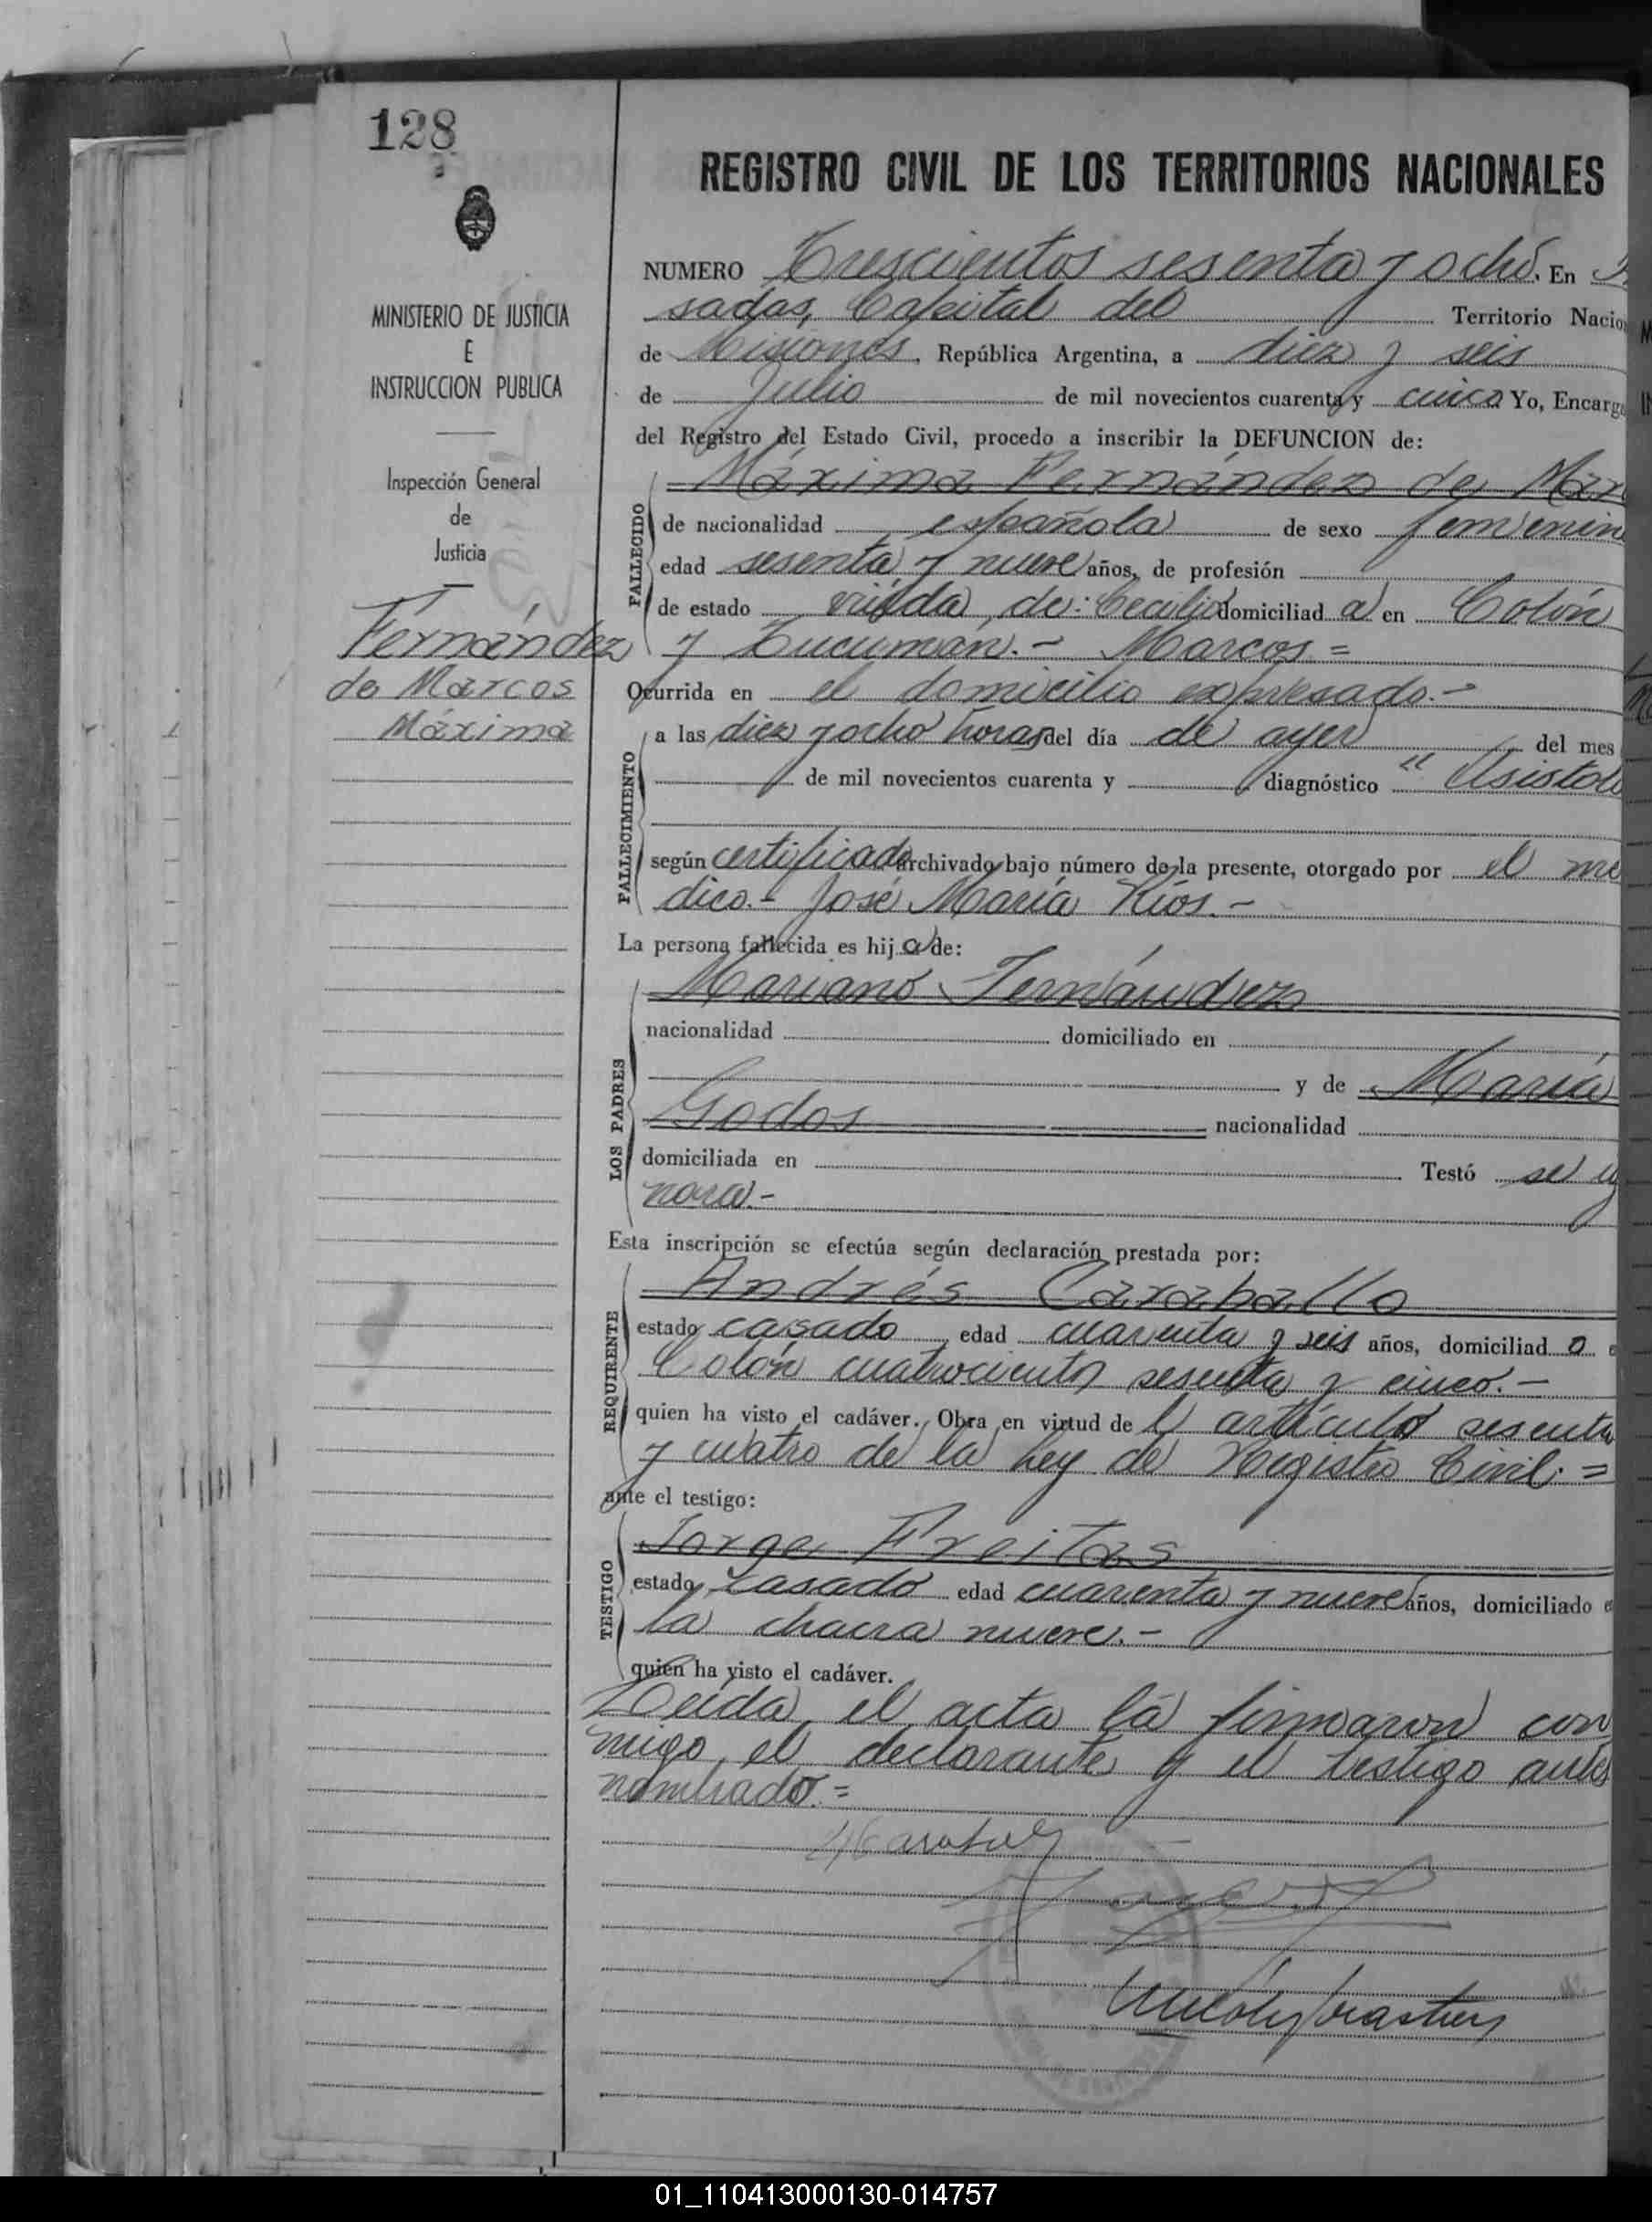 128
REGISTRO CIVIL DE LOS TERRITORIOS NACIONALES
MINISTERIO DE JUSTICIA
E
INSTRUCCION PUBLICA
Inspección General
de
Justicia
Fernández
de Marcos
Máxima
NUMERO Trescientos sesenta y ocho. En
sadas, Capital del Territorio Nacio
de Misiones, República Argentina, a diez y seis
de Julio de mil novecientos cuarenta y cinco Yo, Encarg
del Registro del Estado Civil, procedo a inscribir la DEFUNCION de:
FALLECIDO
Máxima Fernández de Mar
de nacionalidad española de sexo femenin
edad sesenta y nueve años, de profesión
de estado viuda de: Cecilio domiciliad a en Colón
y Tucumán.- Marcos =
Ocurrida en el domicilio expresado.-
FALLECIMIENTO
a las diez y ocho horas del día de ayer del mes
de mil novecientos cuarenta y diagnóstico "Asistol
según certificado archivado bajo número de la presente, otorgado por el mé
dico.- José María Ríos.-
La persona fallecida es hij a de:
LOS PADRES
Mariano Fernández
nacionalidad domiciliado en
y de María
Godos nacionalidad
domiciliada en Testó se ig
nora.-
Esta inscripción se efectúa según declaración prestada por:
REQUIRENTE
Andrés Caraballo
estado casado edad cuarenta y seis años, domiciliad o e
Colón cuatrocientos sesenta y cinco.-
quien ha visto el cadáver. Obra en virtud de l artículo sesenta
y cuatro de la Ley de Registro Civil. =
ante el testigo:
TESTIGO
Jorge Freitas
estado casado edad cuarenta y nueve años, domiciliado e
la chacra nueve.-
quien ha visto el cadáver.
Leída el acta la firmaron con
migo, el declarante y el testigo antes
nombrado.=
01_110413000130-014757